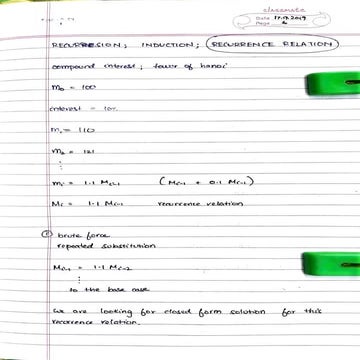 classmate
Date 17.9.2019
Page
RECURRESION; INDUCTION; RECURRENCE RELATION
compound interest; tower of hanoi
m₀ = 100
interest = 10%
m₁ = 110
m₂ = 121
⋮
mᵢ = 1.1 Mᵢ₋₁ (Mᵢ₋₁ + 0.1 Mᵢ₋₁)
Mᵢ = 1.1 Mᵢ₋₁ recurrence relation
brute force
repeated substitution
Mᵢ₋₁ = 1.1 Mᵢ₋₂
⋮
to the base case
we are looking for closed form solution for this
recurrence relation.